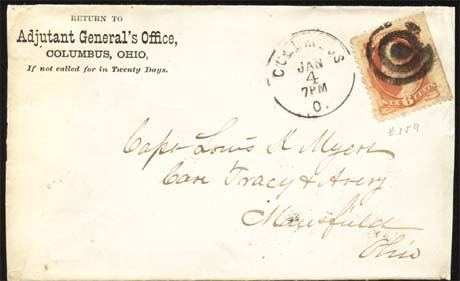 RETURN TO
Adjutant General's Office,
COLUMBUS, OHIO,
If not called for in Twenty Days.
COLUMBUS
JAN
4
7PM
O.
SIX 6 CENTS
Capt Louis K Myers
Care Tracy & Avery
Mansfield
Ohio